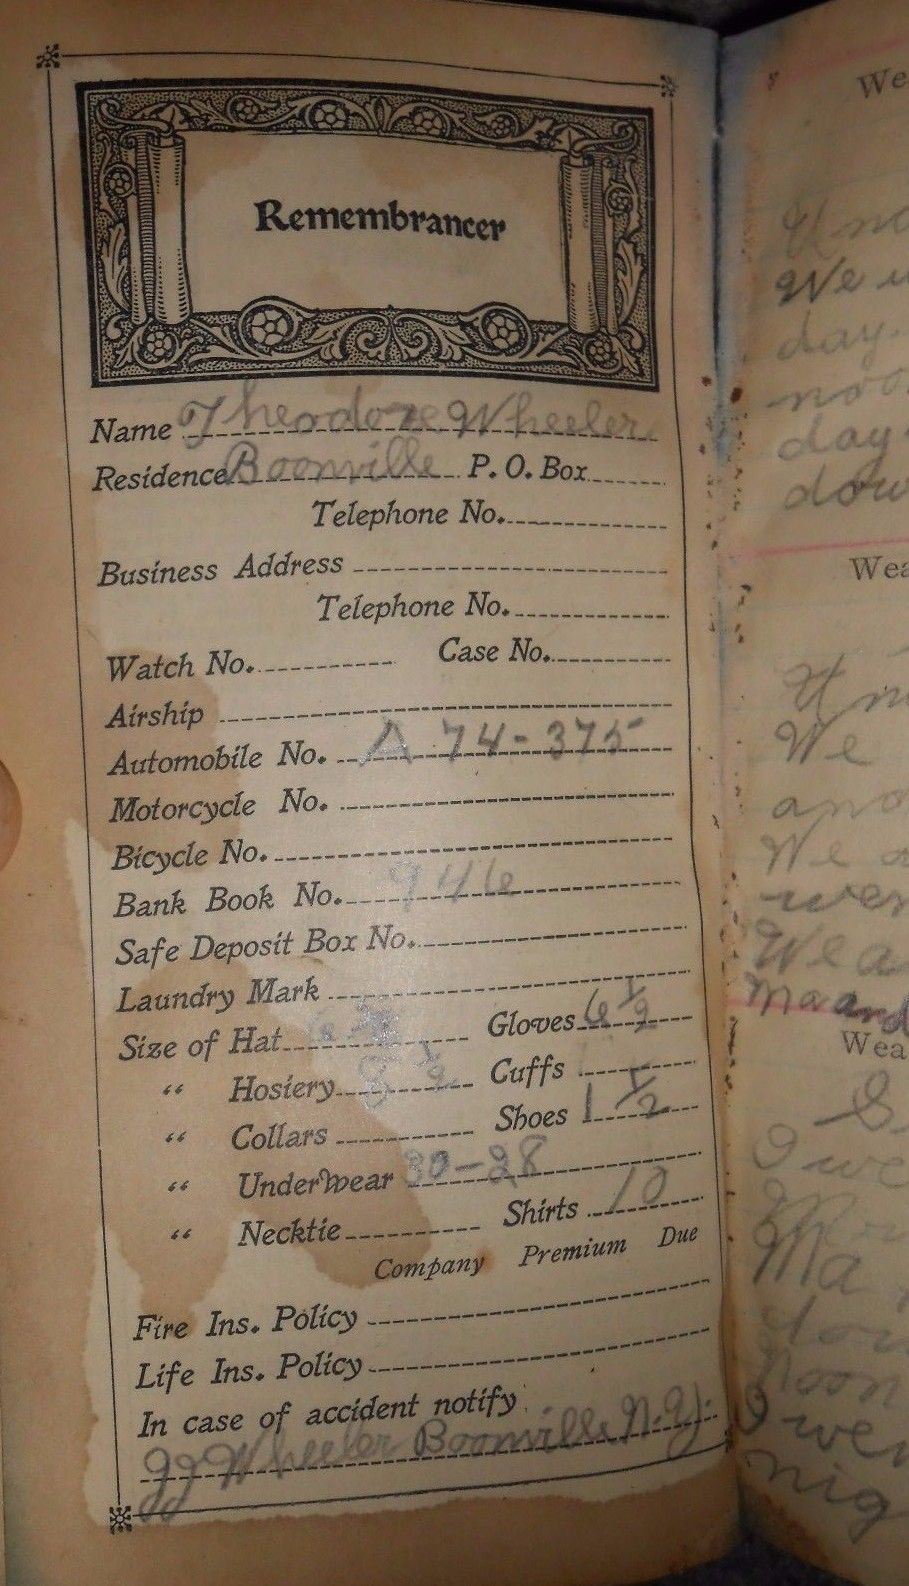 Remembrancer
Name Theodore Wheeler
Residence Boonville P. O. Box
Telephone No.
Business Address
Telephone No.
Watch No. Case No.
Airship
Automobile No. A 74-375
Motorcycle No.
Bicycle No.
Bank Book No. 946
Safe Deposit Box No.
Laundry Mark
Size of Hat 6 Gloves 6 1/2
" Hosiery 8 1/2 Cuffs
" Collars Shoes 1 1/2
" Underwear 30-28
" Necktie Shirts 10
Company Premium Due
Fire Ins. Policy
Life Ins. Policy
In case of accident notify
JJ Wheeler Boonville N.Y.
We
We
day.
noo
day
dow
Wea
We
and
We a
wer
We a
Ma and
Wea
I we
Ma
noon
I wen
nig